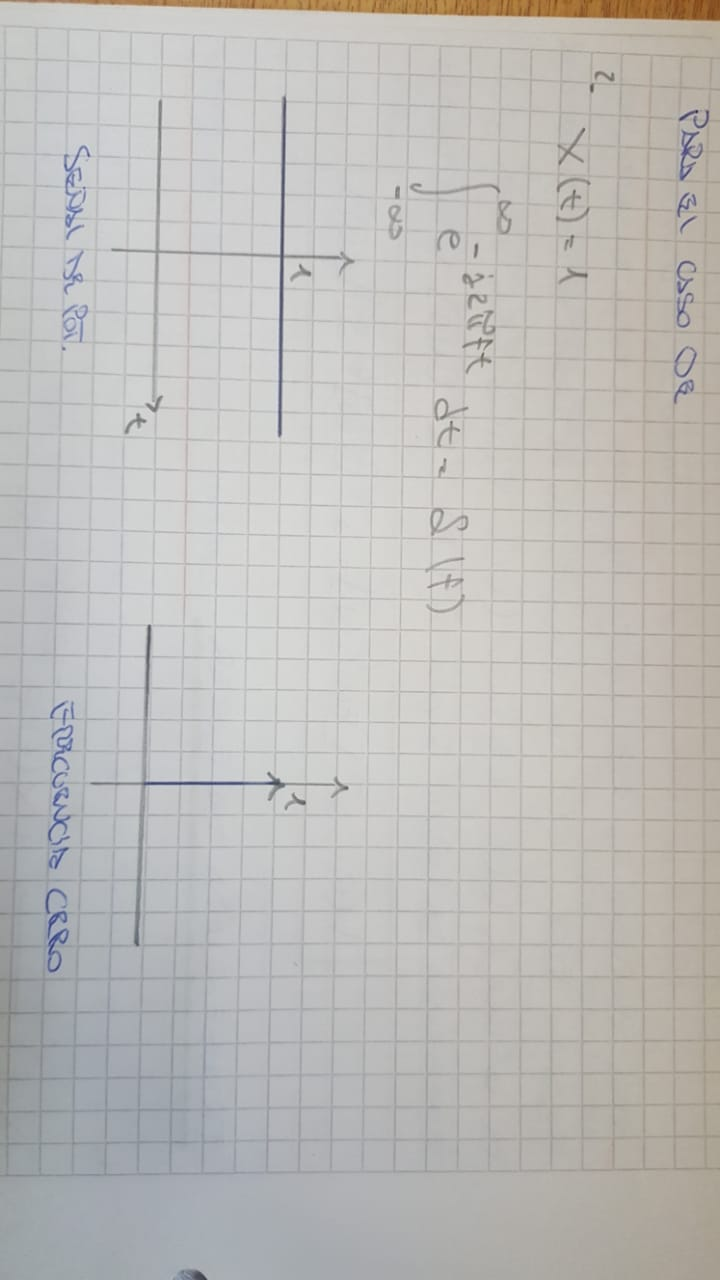 PARA EL CASO DE
2. X(t) = 1
∫_{-∞}^{∞} e^{-j2πft} dt = δ(f)
1
t
1
SEÑAL DE POT.
FRECUENCIA CERO